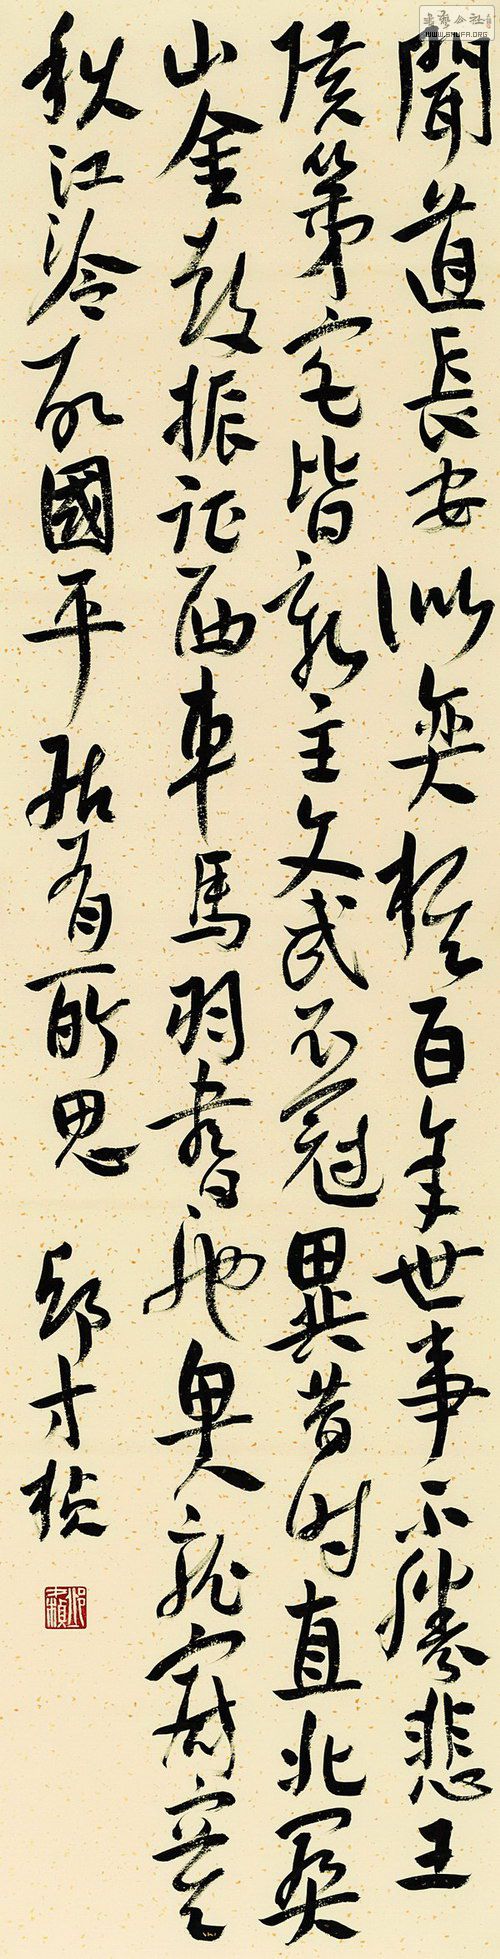 聞道長安似奕棋百年世事不勝悲王
侯第宅皆新主文武衣冠異昔时直北關
山金鼓振征西車馬羽書馳魚龍寂寞
秋江冷故國平居有所思 邱才楨
書藝公社
WWW.SHUFA.ORG